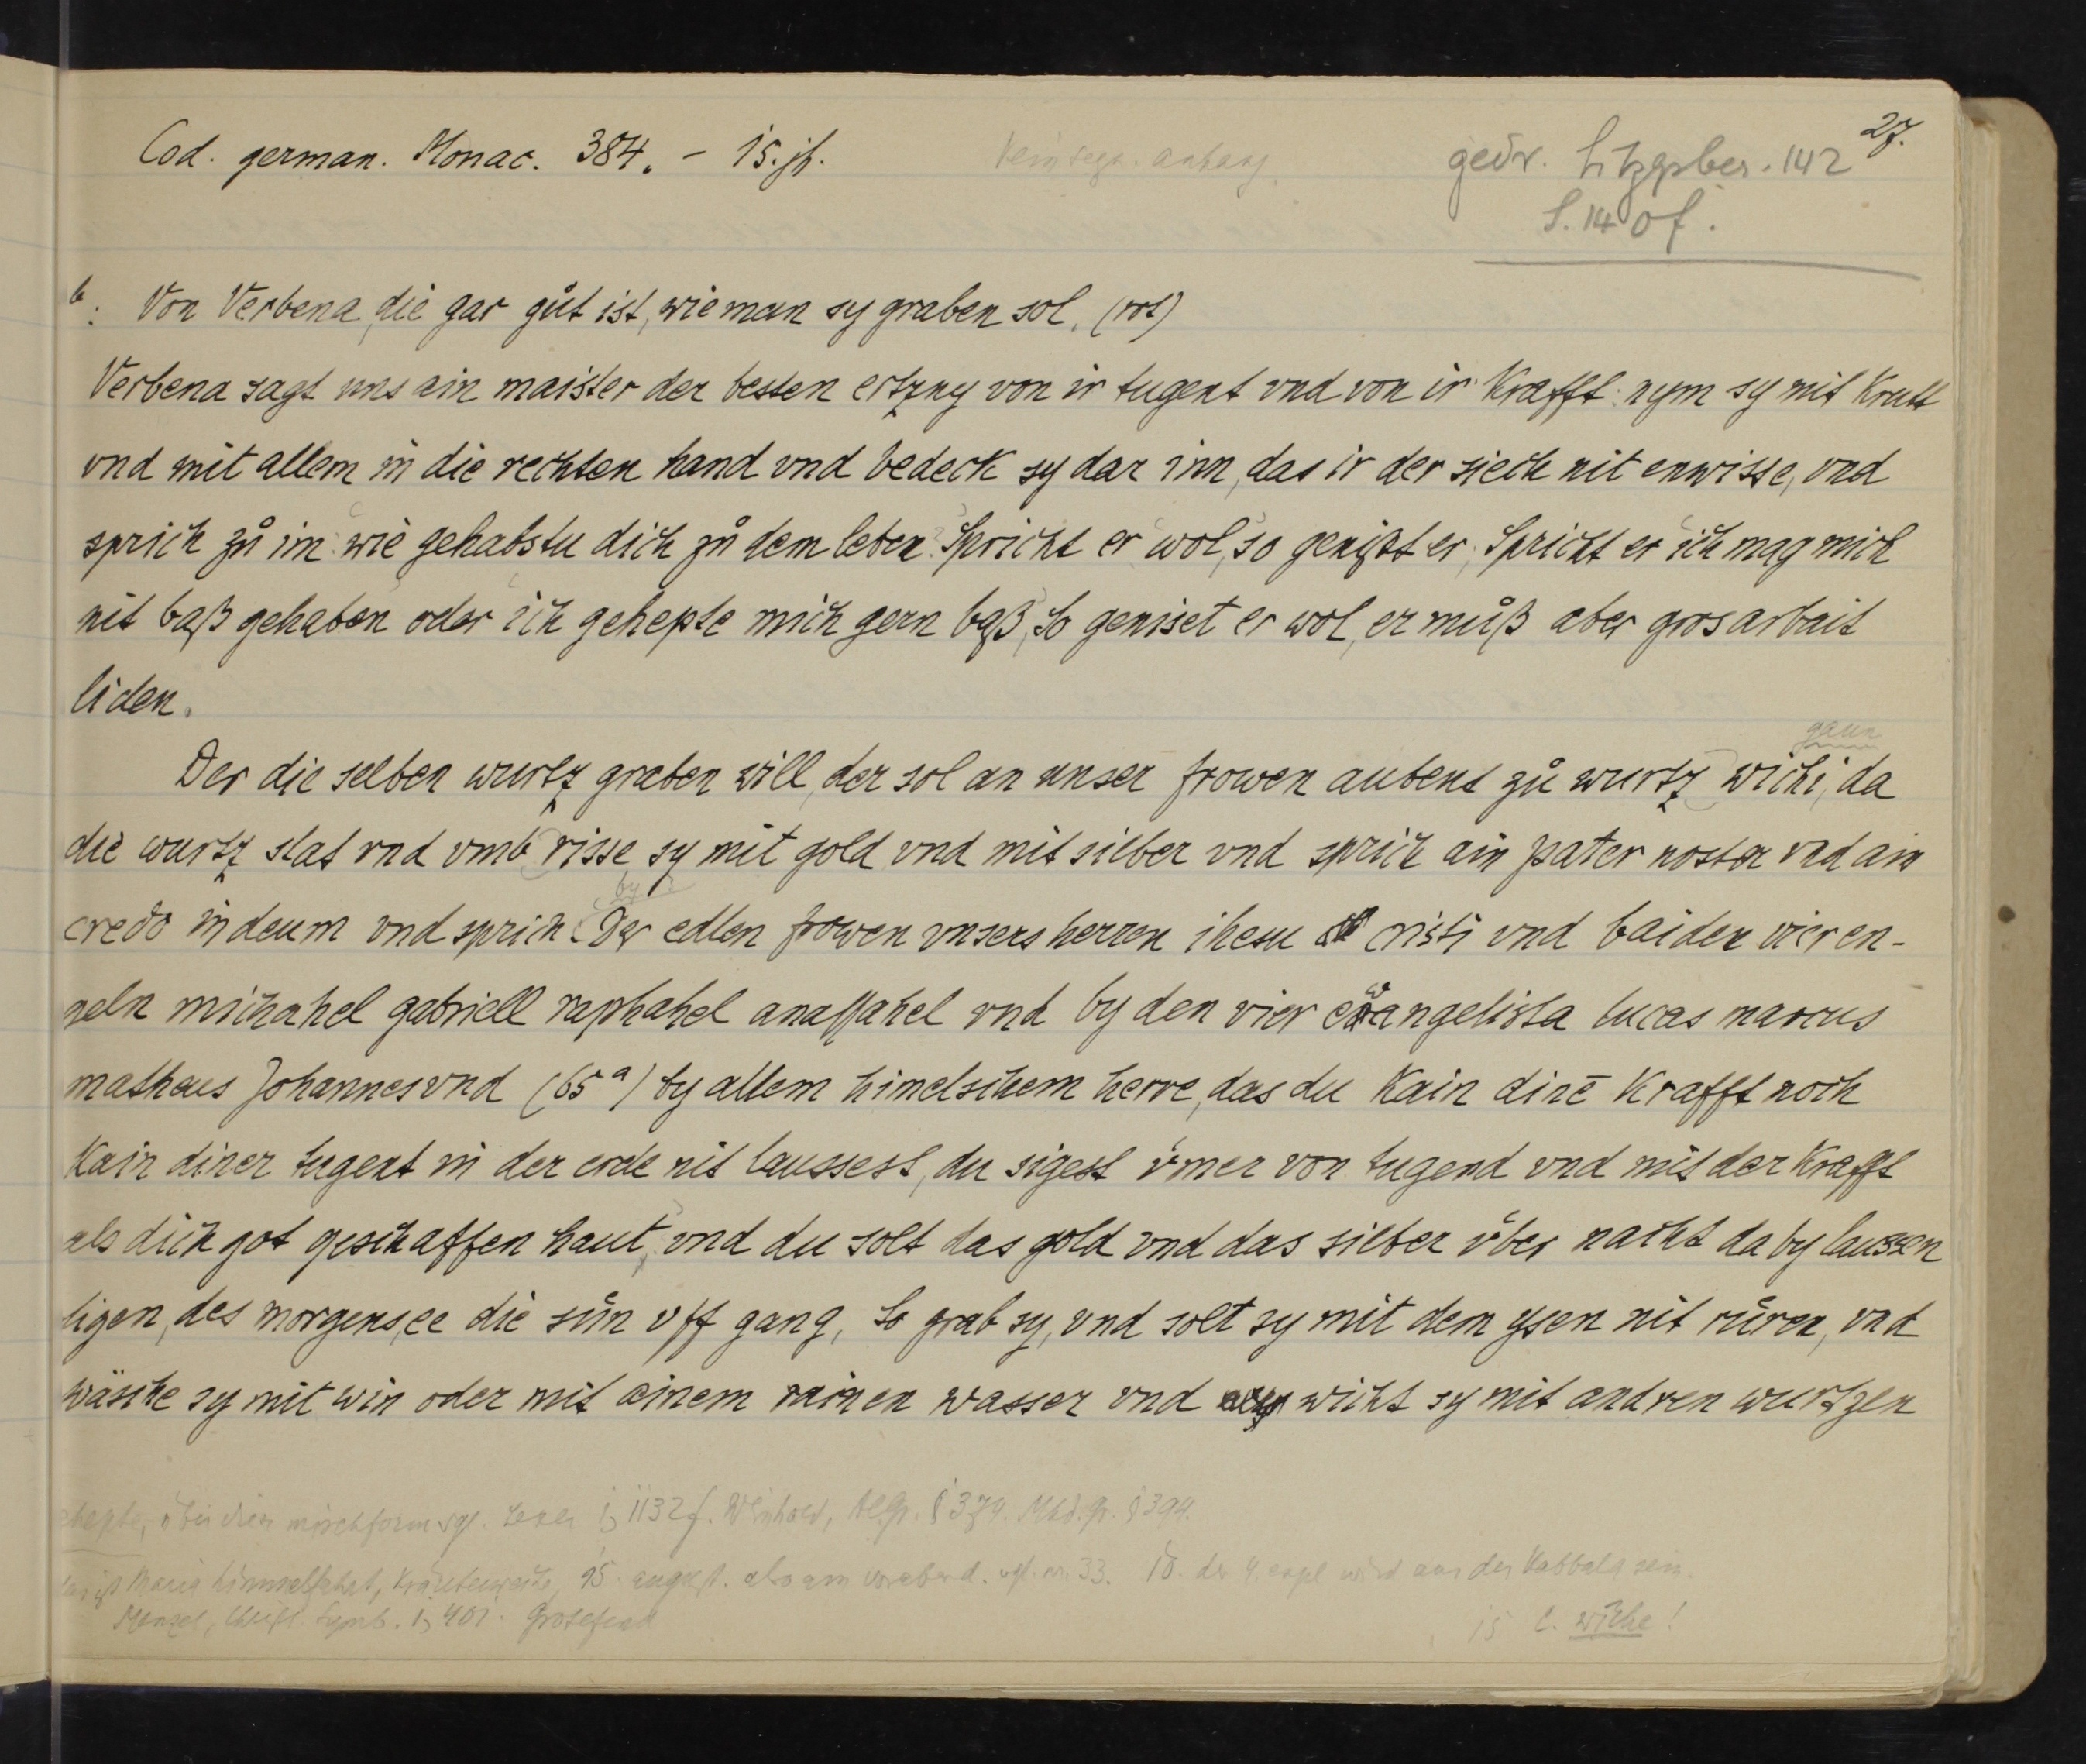 27.
Cod. german. Monac. 384. – 15. jh.
gedr. Sitzgsber. 142
S. 140 f.
b. Von Verbena, die gar gůt ist, wie man sy graben sol. (rot)
Verbena sagt uns ain maister der besten ertzny von ir tugent vnd von ir krafft. nym sy mit krutt
vnd mit allem in die rechten hand vnd bedeck sy dar inn, das ir der siech nit enwisse, vnd
sprich zů im: wie gehabstu dich zů dem leben? Spricht er wol, so genißt er, Spricht er ich mag mich
nit baß gehaben oder ich gehepte mich gern baß, So geniset er wol, er můß aber gros arbait
liden.
gaun
Der die selben wurtz graben will, der sol an unser frowen aubent zů wurtz wichi, da
die wurtz stat vnd vmb risse sy mit gold vnd mit silber vnd sprich ain pater noster vnd ain
by
credo in deum vnd sprich Der edlen frowen vnsers herren ihesu cristi vnd baiden vier en-
geln michahel gabriell raphahel anassahel vnd by den vier ewangelista lucas marcus
matheus Johannes vnd (65a) by allem himelschem herre, das du kain dinē krafft noch
kain diner tugent in der erde nit laussest, du sigest ymer von tugend vnd mit der krafft
als dich got geschaffen haut, vnd du solt das gold vnd das silber über nacht da by laussen
ligen, des morgens, ee die sůn vff gang, So grab sy, vnd solt sy mit dem ysen nit růren, vnd
wäsche sy mit win oder mit ainem rainen wasser vnd wicht sy mit andren wurtzen
gehepte, über diese mischform vgl. Lexer 1, 1132 f. Weinhold, Al. Gr. § 374. Mhd. Gr. § 394.
das ist Mariä himmelfahrt, Kräuterweihe, 15. august. also am vorabend. vgl. nr. 33. 10. der 4. engel wird aus der Kabbala sein.
Menzel, Christl. Symb. 1, 401. Grotefend
15 l. wihe!